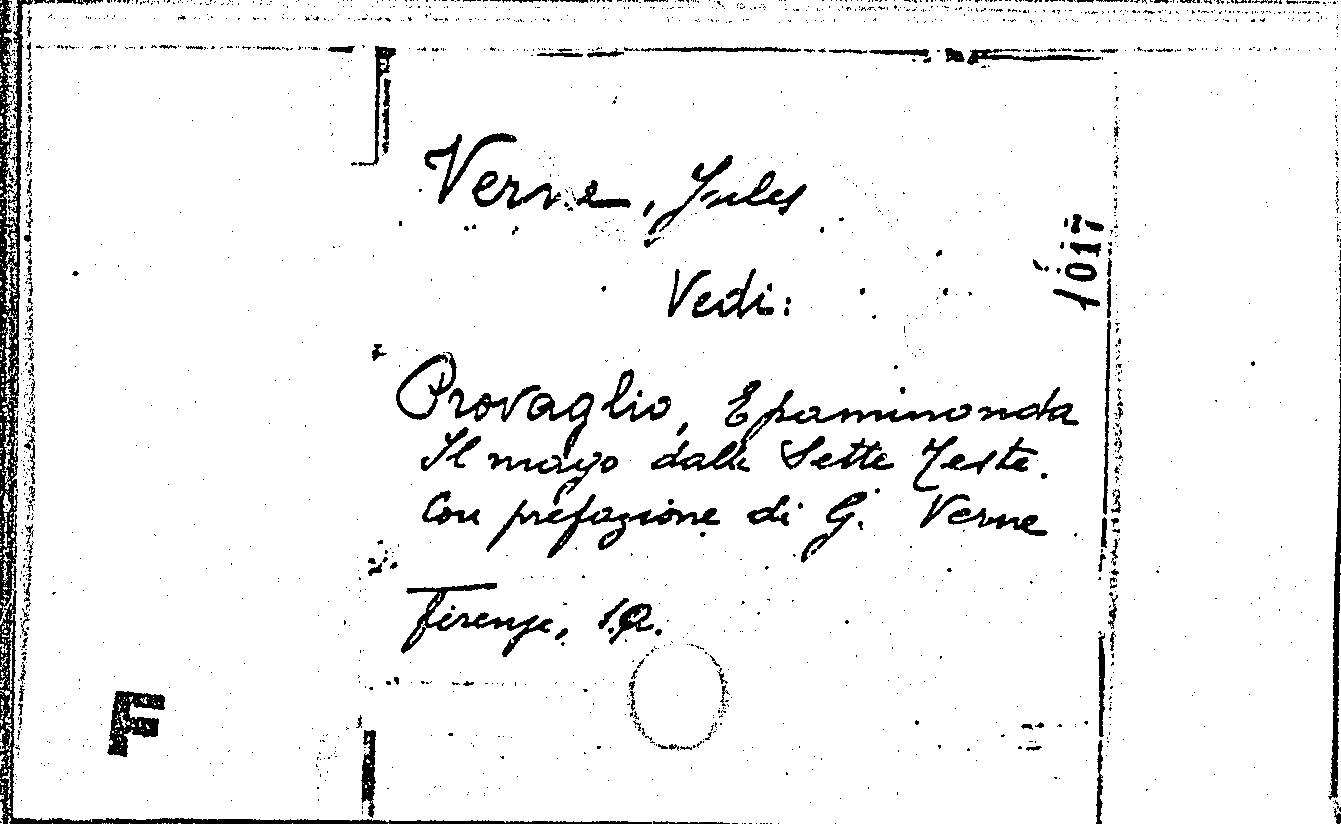 Verne, Jules
1017
Vedi:
Provaglio, Epaminonda
Il mago dalle Sette Teste.
Con prefazione di G. Verne
Firenze, s.a.
F